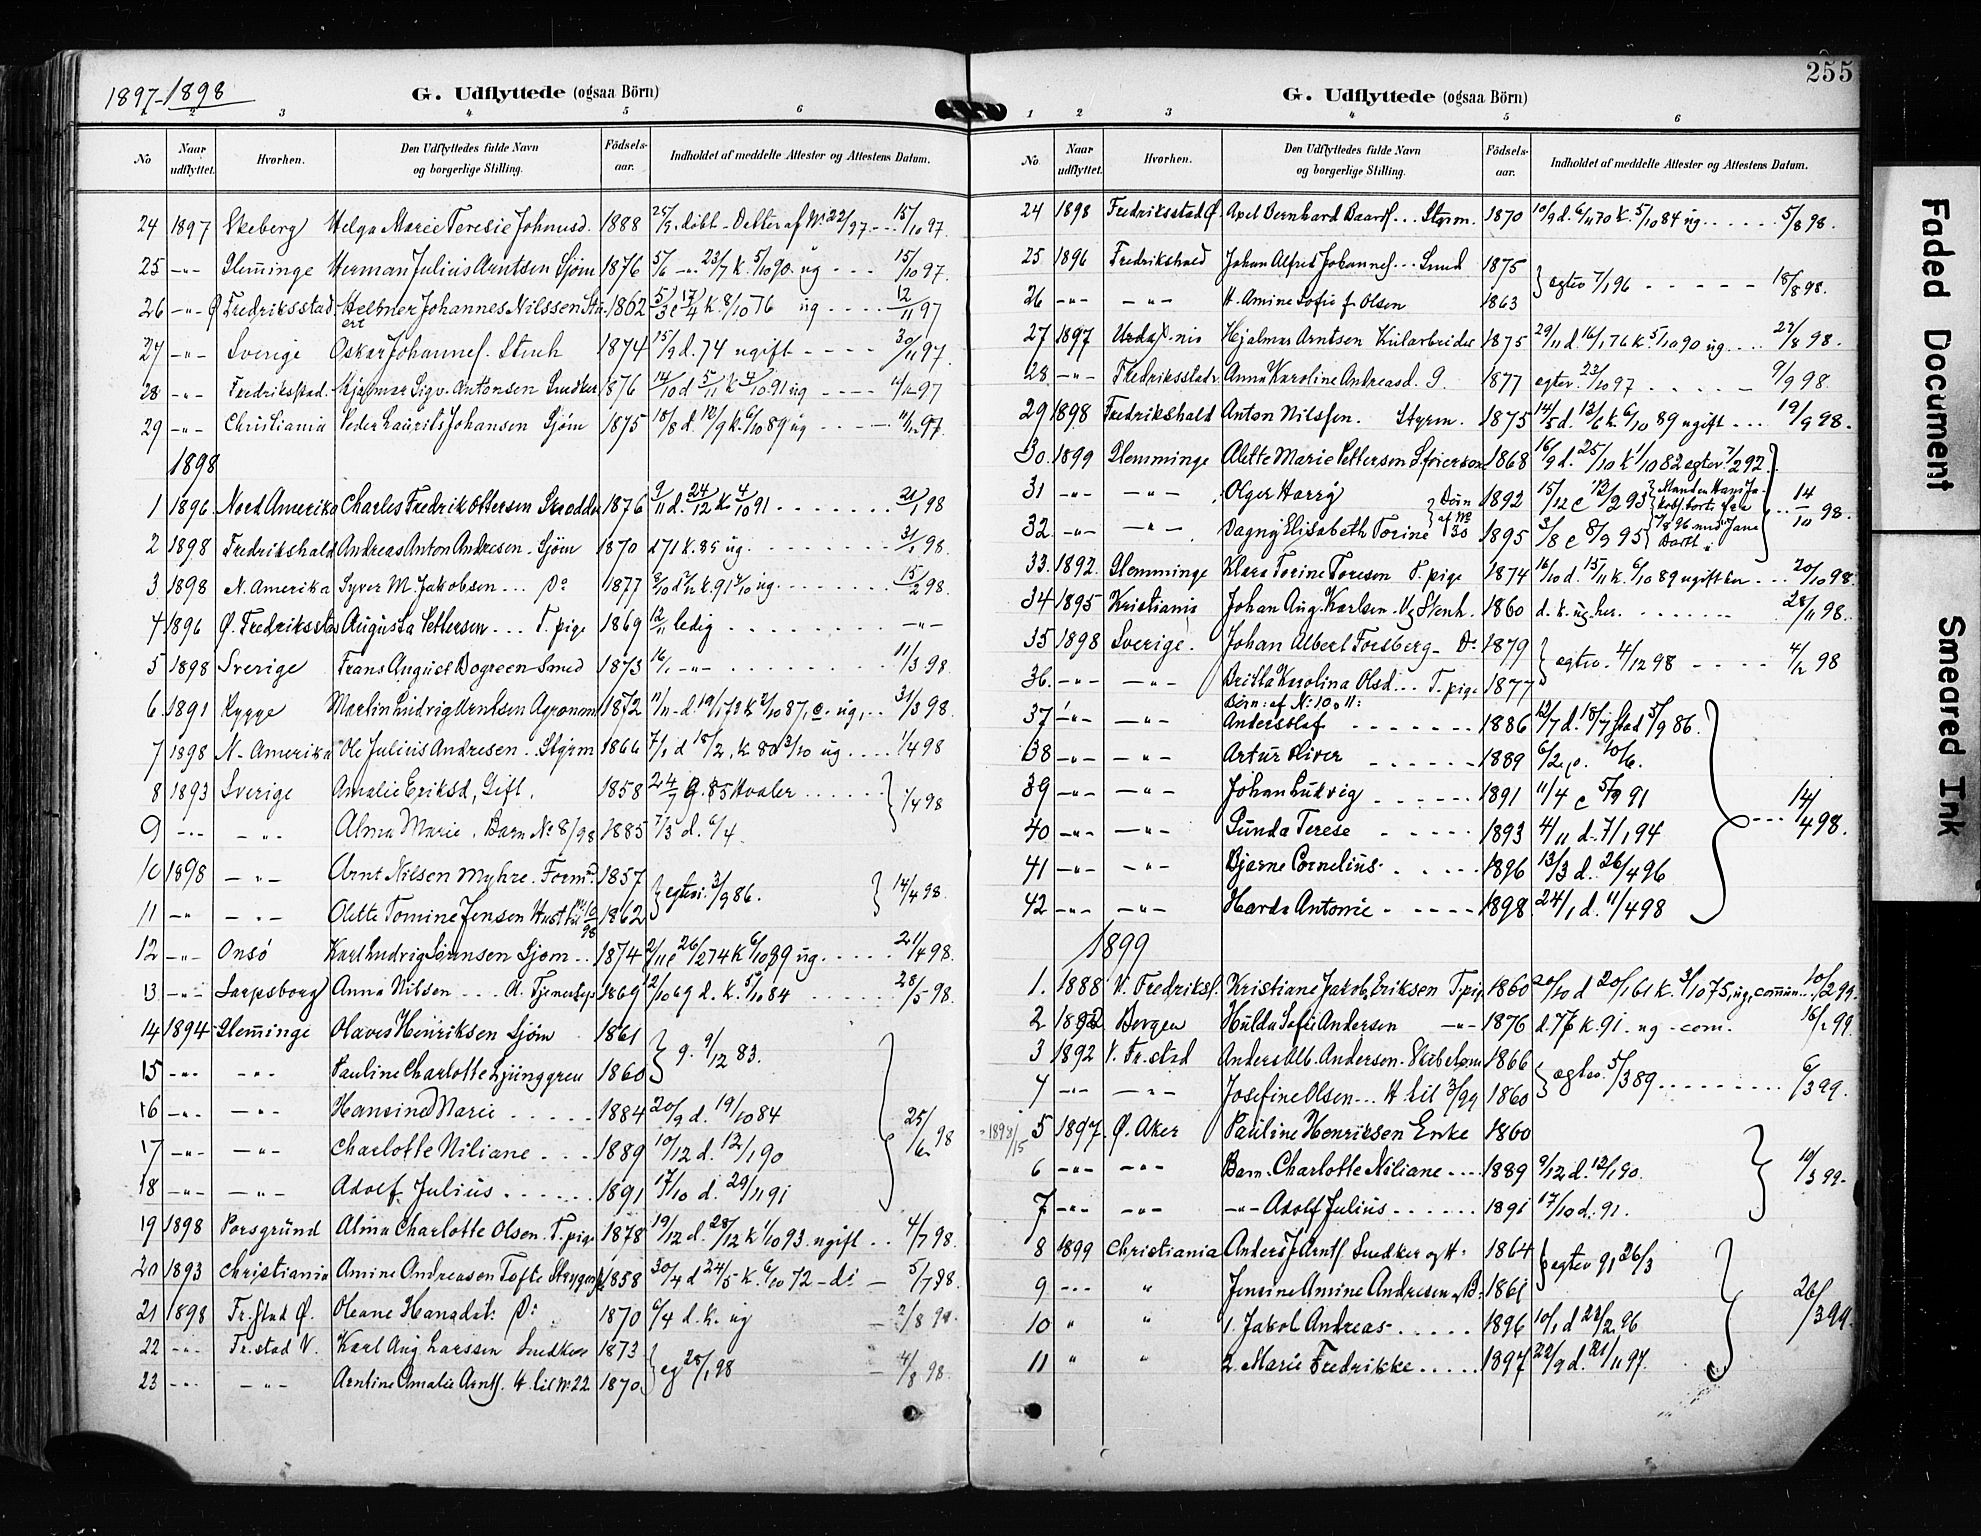 1897-1898
G. Udflyttede (ogsaa Börn)
1 2 3 4 5 6
No Naar udflyttet. Hvorhen. Den Udflyttedes fulde Navn og borgerlige Stilling. Födsels-aar. Indholdet af meddelte Attester og Attestens Datum.
24 1897 Ekeberg Helga Marie Teresie Johannesd. 1888 15/10 97.
25 -"- Glemminge Herman Julius Arntsen Sjøm 1876 5/6 -"- 23/7 k. 5/10 90. ug 15/10 97.
26 -"- Ø Fredriksstad Johannes Nilssen 1862 5/3 17/4 k 8/10 76 ug 12/11 97
27 -"- Sverige Oskar Johannes. Stenh 1874 15/9 d. 74 ugift 30/11 97.
28 -"- Fredriksstad. Hjalmar Sigv. Antonsen Snedker 1876 14/10 d 5/11 k 4/10 91 ug 4/12 97
29 -"- Christiania Peder Laurits Johansen Sjøm 1875 18/8 d. 12/9 k. 6/10 89 ug 11/12 97.
1898
1 1896 Nord Amerika Charles Fredrik Ottersen Skrædder 1876 9/11 d. 24/12 k 4/10 91 21/1 98
2 1898 Fredrikshald Andreas Anton Andresen. Sjøm 1870 d 71 k. 85 ug. 31/1 98.
3 1898 N. Amerika Syver M. Jakobsen Do 1877 ug 15/2 98.
4 1896 Ø. Fredriksstad Augusta Pettersen T. pige 1869 12/11 ledig -"-
5 1898 Sverige Frans August Bogreen Smed 1873 16/1 -"- 11/3 98.
6 1891 Rygge Martin Ludvig Arntsen Agronom 1872 ug. 31/3 98.
7 1898 N. Amerika Ole Julius Andresen. Styrm 1866 7/1 d 18/2, k 80 3/10 ug 1/4 98
8 1893 Sverige Amalie Eriksd, Gift. 1858 24/9 85 Hvaler 1/4 98
9 -"- -"- Alma Marie. Barn No 8/98 1885 7/3 d. 6/4.
10 1898 -"- Arnt Nilsen Myhre. Form. 1857 egtev. 3/9 86. 14/4 98.
11 -"- -"- Olette Tomine Jensen Hustru No 10/98 1862
12 -"- Onsö Karl Ludvig Sörensen Sjøm 1874 2/11 26/2 74 k 6/10 89 ug. 21/4 98.
13 -"- Sarpsborg Anna Nilsen 1869 2/10 69 d. k. 5/10 84 28/5 98.
14 1894 Glemminge Olaves Henriksen Sjøm 1861 g. 9/12 83.
15 -"- -"- Pauline Charlotte Ljunggren 1860
16 -"- -"- Hansine Marie 1884 20/9 d. 19/10 84
17 -"- -"- Charlotte Niliane 1889 10/12 d. 12/1 90 25/6 98
18 -"- -"- Adolf Julius 1891 17/10 d. 29/11 91
19 1898 Porsgrund Alma Charlotte Olsen. T. pige 1878 19/12 d. 28/12 k 1/10 93. ugift 4/7 98.
20 1893 Christiania Amine Andreasen Tofte 1858 30/4 d 24/5 k. 6/10 72 - di - 5/7 98.
21 1898 Fr. stad Ø. Oleane Hansdat. Do 1870 6/4 d. k. ug 2/8 98.
22 -"- Fr. stad V. Karl Aug Larssen Snedker 1873 eg 28/1 98
23 -"- -"- Arntine Amalie Arnts. H. til No 22 1870 4/8 98.
255
G. Udflyttede (ogsaa Börn)
1 2 3 4 5 6
No Naar udflyttet. Hvorhen. Den Udflyttedes fulde Navn og borgerlige Stilling. Födsels-aar. Indholdet af meddelte Attester og Attestens Datum.
24 1898 Fredriksstad Ø. Axel Bernhard Baards. Styrm. 1870 10/9 d. 6/11 70 k. 5/10 84 ug 5/8 98.
25 1896 Fredrikshald Johan Alfred Johannes. Smed 1875 egtev 7/1 96 18/8 98.
26 -"- -"- H. Amine Sofie f. Olsen 1863
27 1897 Hjalmar Arntsen Kularbeider 1875 29/11 d. 16/1 76 k. 5/10 90 ug. 27/8 98.
28 -"- Fredriksstad V. Anna Karoline Andreasd. G. 1877 egtev. 23/10 97 9/9 98.
29 1898 Fredrikshald Anton Nilssen. Styrm. 1875 14/5 d. 13/6 k. 6/10 89 ugift 19/9 98.
30. 1899 Glemminge Alette Marie Pettersen 1868 16/9 d. 25/10 k 1/10 82 egtev. 7/2 92.
31 -"- -"- Olger Harry Börn af No 30 1892 15/12 c 12/2 93 14/10 98.
32. -"- -"- Dagny Elisabeth Torine 1895 3/8 c 8/9 95
33. 1892. Glemminge Klara Torine Toresen T. pige 1874 16/10 d. 15/11 k. 6/10 89 ugift 20/10 98.
34 1895 Kristiania Johan Aug. Karlsen. Stenh. 1860 d. k. ug. her. 28/11 98.
35 1898 Sverige. Johan Albert Forsberg Do 1879 egtev. 4/12 98 4/12 98
36. -"- -"- Britta Karolina Olsd. T. pige 1877
Börn: af No: 10 o 11:
37 -"- -"- Anders Olaf 1886 12/7 d. 18/7 stad 5/9 86.
38 -"- -"- Artur Oliver 1889 6/2 10/6.
39 -"- -"- Johan Ludvig 1891 11/4 c 91 14/4 98.
40 -"- -"- Gunda Terese 1893 4/11 d. 7/1 94
41 -"- -"- Bjarne Cornelius 1896 13/3 d. 26/4 96
42 -"- -"- Harda Antonie 1898. 24/1 d. 11/4 98
1899
1. 1888 V. Fredrikss. Kristiane Jakob. Eriksen T. pig 1860 20/10 d 20/1 61 k. 3/10 75, ug, commun. 10/2 99.
2 Bergen Hulda Sofie Andersen -"- 1876 d. 76 k. 91 - ug - com. 16/2 99.
3 1892 V. Fr. stad Anders Alb. Andersen. 1866 egtev. 5/3 89 6/3 99.
4 -"- -"- Josefine Olsen H til 3/99 1860
1898/15 5 1897. Ø. Aker Pauline Henriksen Enke 1860
6 -"- -"- Barn. Charlotte Niliane 1889 9/12 d. 12/1 90. 19/3 99.
7 -"- -"- -"- Adolf Julius 1891 17/10 d. 91.
8 1899 Christiania Anders J. Arnts Snedker og H. 1864 egtev 91 26/3
9 -"- " Jensine Amine Andresen 1861 26/3 99.
10 " " 1. Jakob Andreas 1896 10/1 d 23/2 96
11 " " 2. Marie Fredrikke 1897 22/9 d. 21/11 97.
Faded Document
Smeared Ink